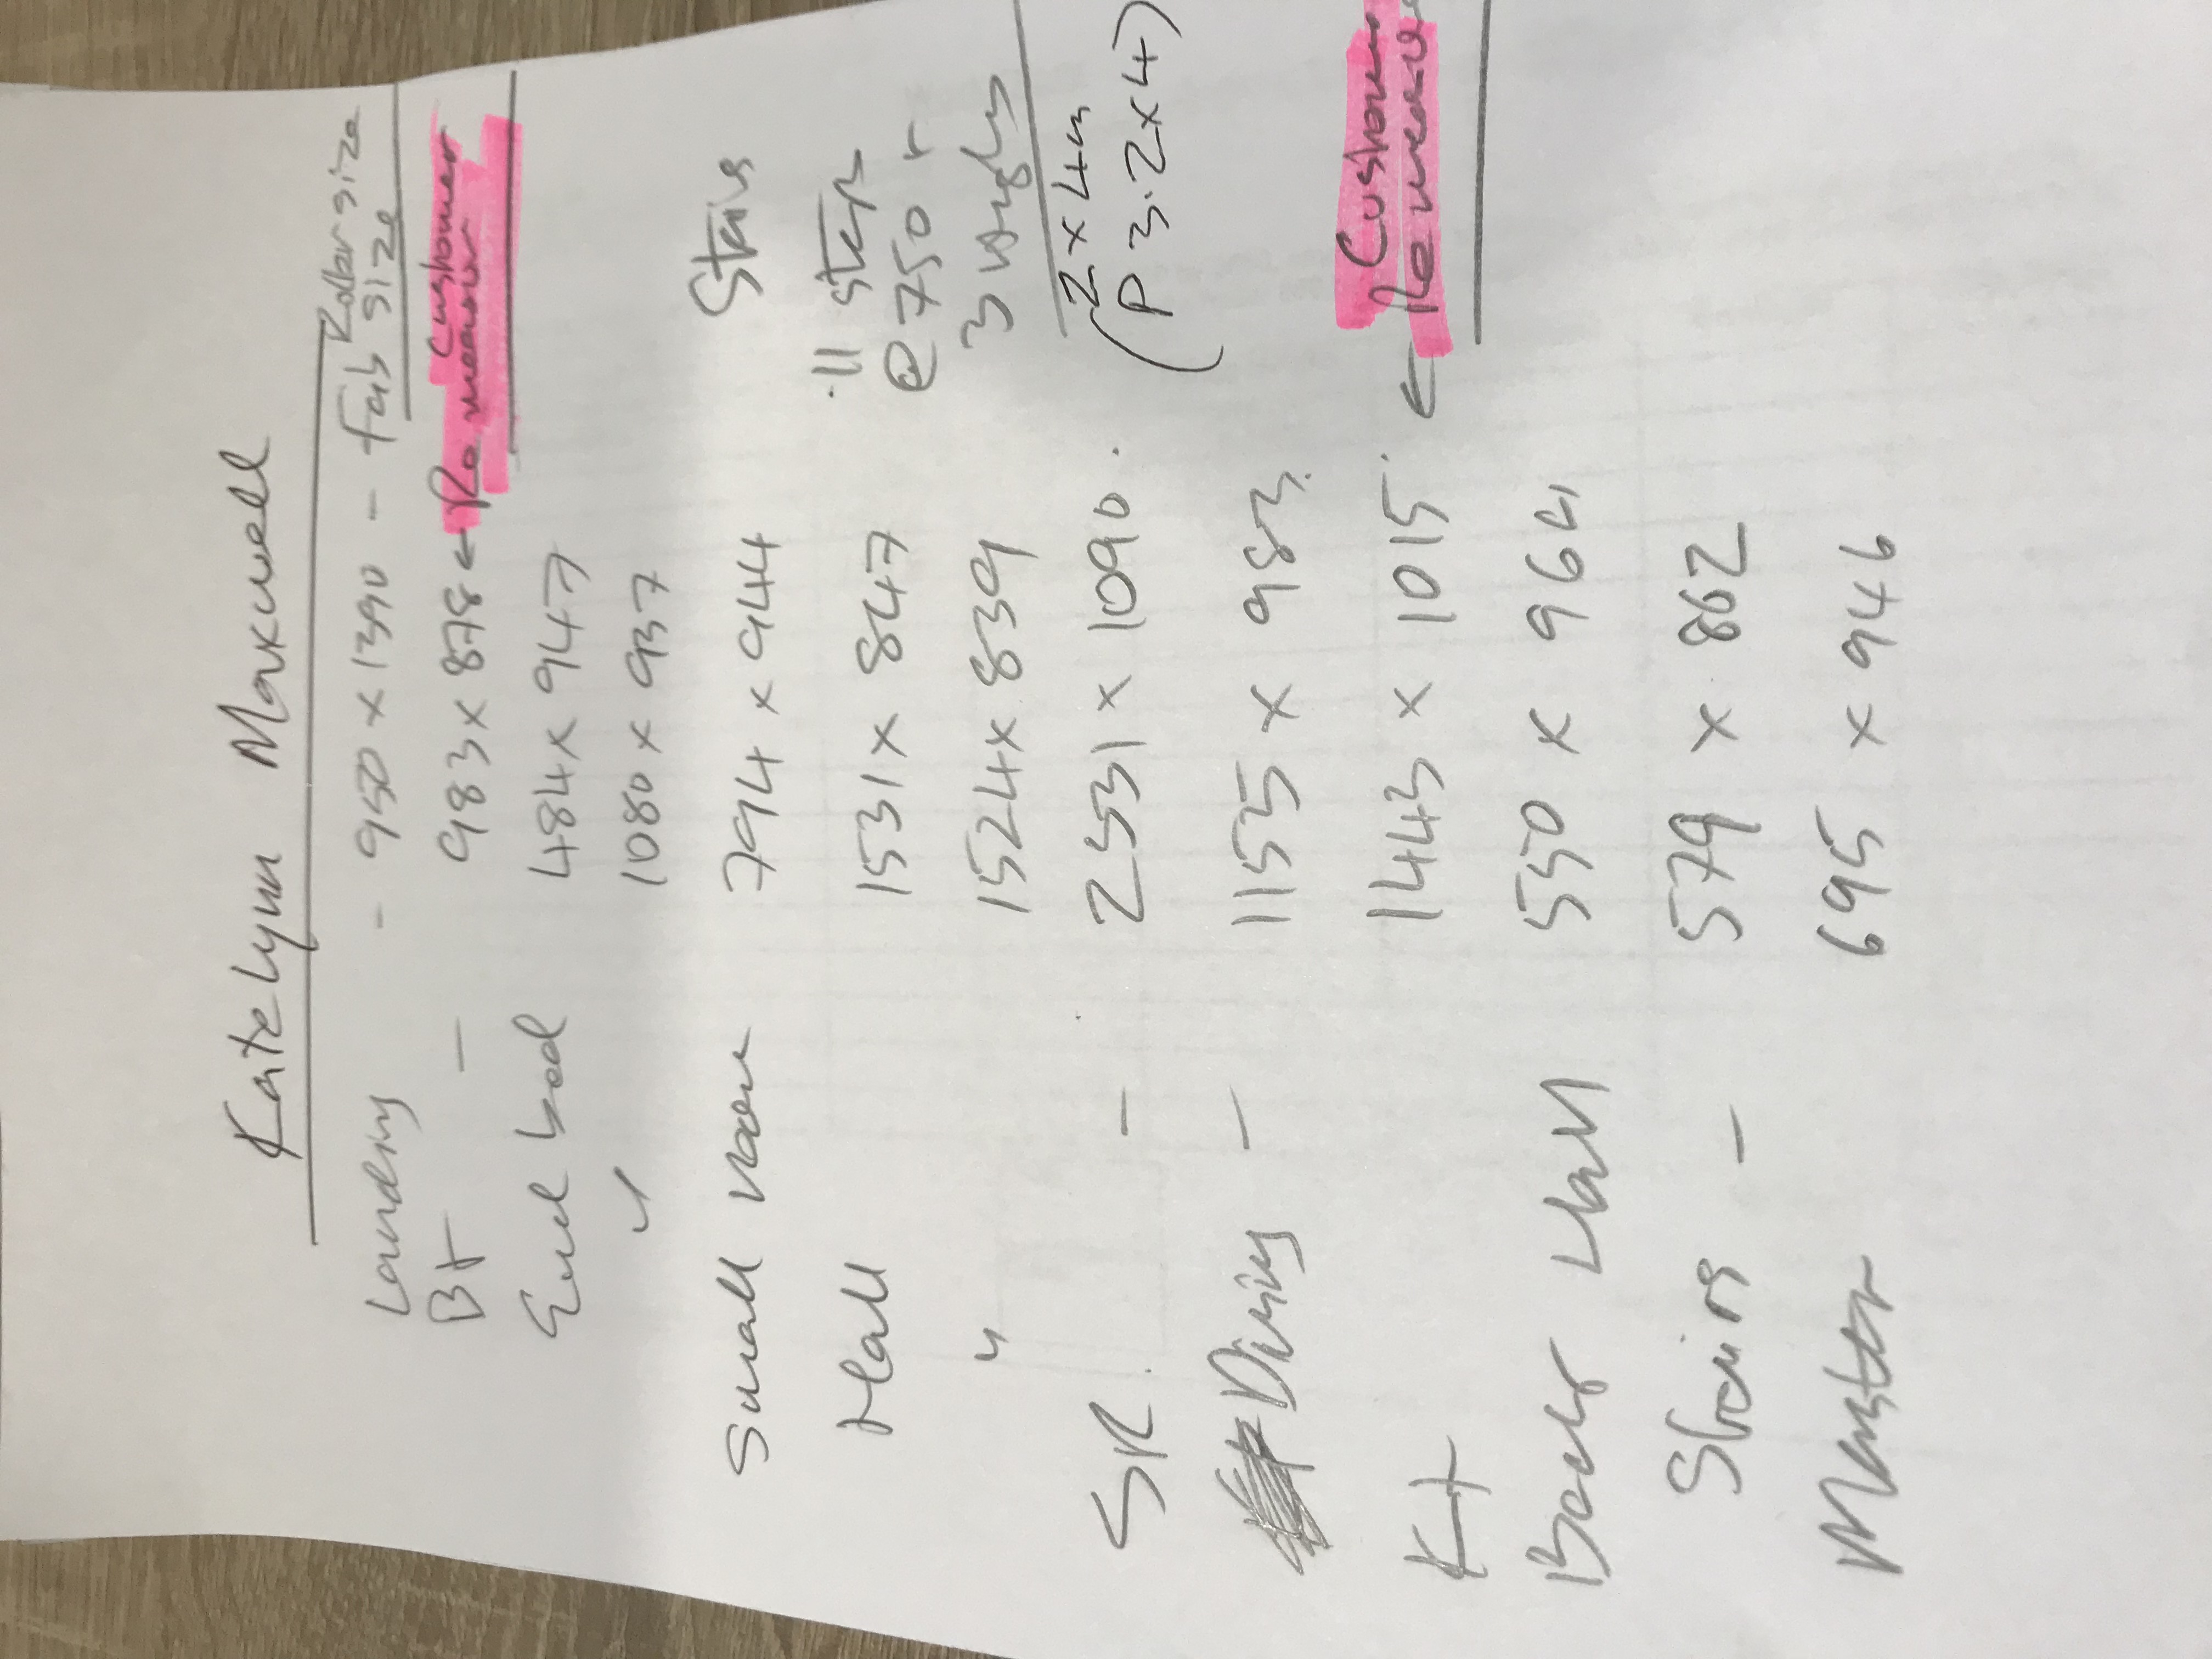 Katelynn Maxwell
Landing - 950 x 1390 - Fab size
Roller size
Bt - 983 x 878 ← Re measure
Customer
End bed 484 x 947
" 1080 x 937
Small room 794 x 944
Stairs
Hall 1531 x 847
11 steps
@ 750 +
" 1524 x 839
3
SR. - 2531 x 1090.
(2 x 4m
P 3.2 x 4)
Dining - 1155 x 983.
Kit 1443 x 1015. ← Re measure
Customer
Back Hall 550 x 964
Stairs - 579 x 862
Master 695 x 946